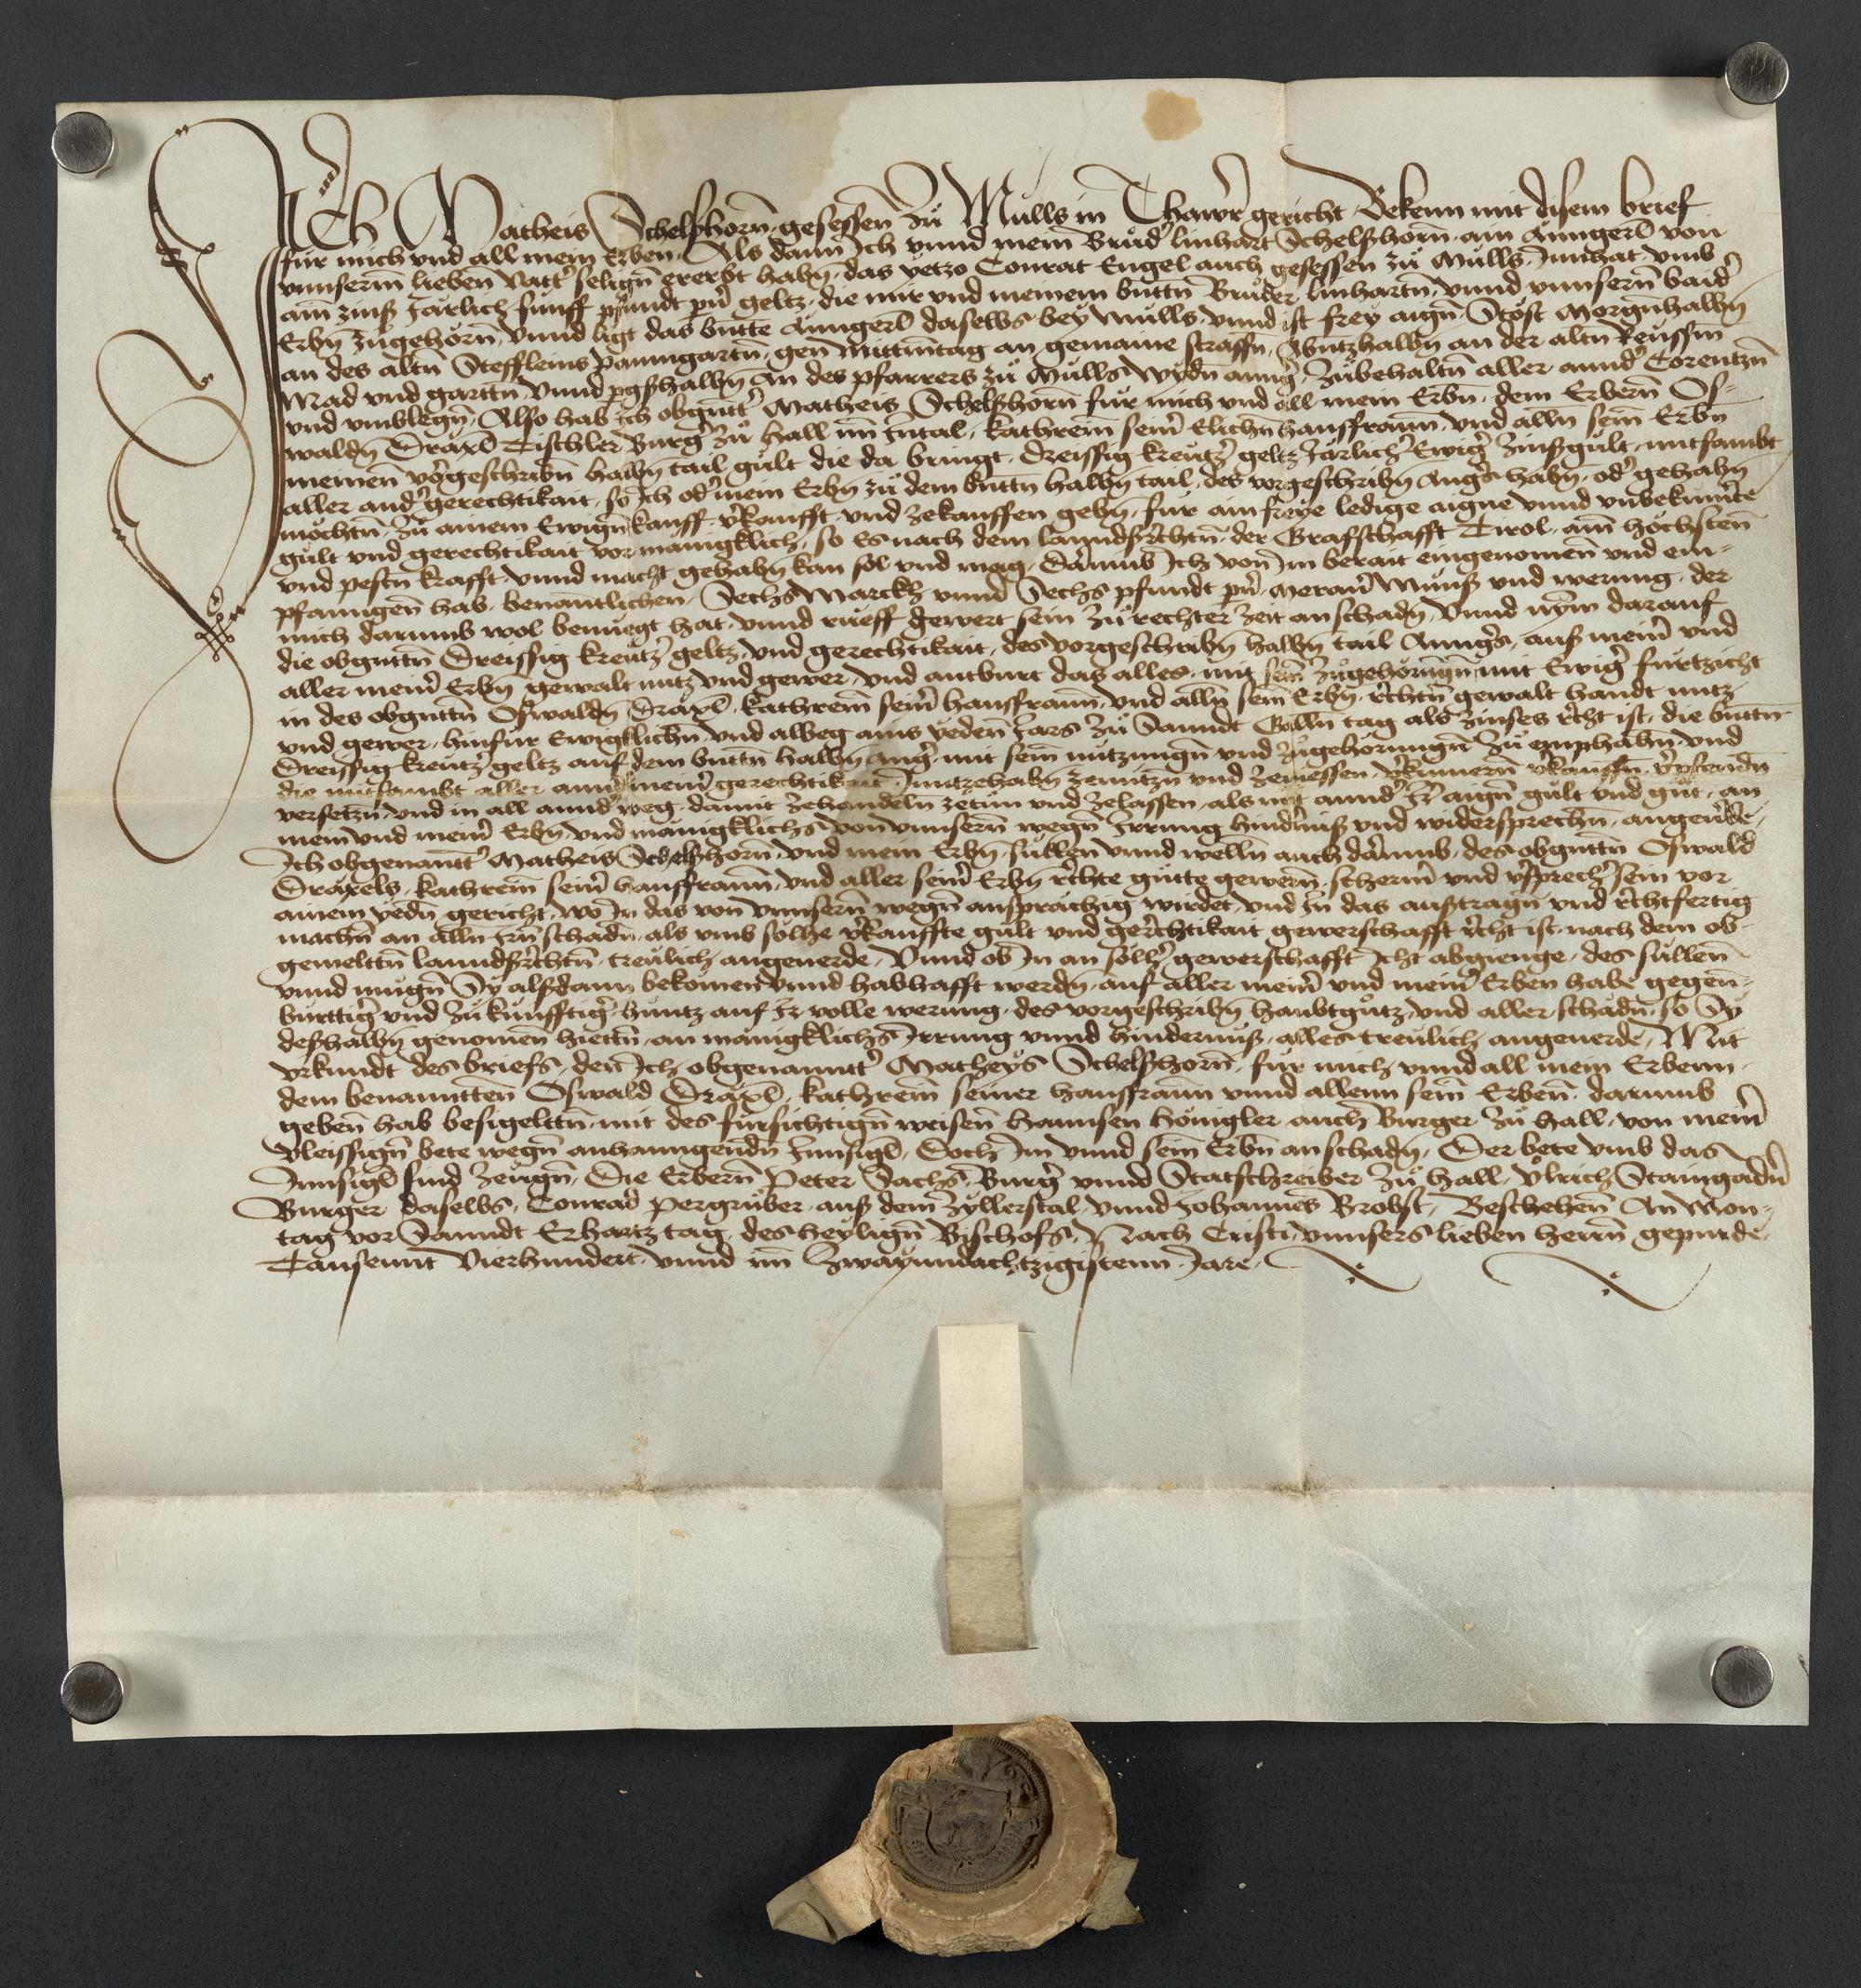 Ich Matheis Schelfhorn gesessen zů Mulls in Thawrer gericht Bekenn mit disem brief
für mich vnd all mein Erben, Als dann Ich vnnd mein Brůder linhart Schelfhorn ain Anngerl von
vnnserm lieben Vatter seligñ ererbt habñ, das yetzo Conrat Engel auch gesessen zů Mulls, Innhat, vmb
ain zinß Järlich funff pfundt pñ geltz, die mir vnd meinem buttñ Brůder linhartñ, vnnd vnnsern baider
Erbñ zůgehörñ, vnnd ligt das butte Anngerl daselbs bey Mulls, vnnd ist frey aigñ Stöst Morgñhalbñ
an des altñ Steffleins Pawmgartñ, gen Mittmtag an gemaine strassñ, Abntzhalbñ an der altñ Reussin
Mad vnd garttñ, vnnd pgßhalbñ an des pfarrers zů Mulls wydñ annger, zůbehaltñ aller annder Corentzñ
vnd vmblegñ, Also hab ich obgntter Matheis Schelfhorn für mich vnd all mein Erbñ, dem Erbern Os=
waldñ Dräxl Tischler Burger zů Hall im Intal, kathrein seiner Elichñ hausfrawñ, vnd allñ sein Erbñ
meinen vorgeschribñ halbñ tail gult die da bringt, dreissig kreutzer geltz Järlicher Ewiger zinßgült, mitsambt
aller ander gerechtikait, so Ich oder mein Erbñ zů dem buttñ halbñ tail, des vorgeschribñ Angers habñ, oder gehabñ
möchtñ, zů ainem Ewigñ kauff, verkaufft vnd zekauffen gebñ, für ain freye ledige aigne vnnd vnbekumerte
gult vnd gerechtikait vor mänigklich, so Es nach dem lanndsrechtñ, der Grafschafft Tirol, am höchsten
vnd pestñ krafft, vnnd macht gehabñ kan sol vnd mag, Darumb Ich von Im berait eingenomen vnd em=
pfanngen hab, benantlichen, Sechs Marckh vnnd Sechs pfundt pñ, meraner Munß vnd werung, der
mich darumb wol benuegt hat, vnnd rueff gewert sein zů rechter zeit an schadñ, vnnd nym darauf
die obgnttñ dreissig kreutzer geltz, vnd gerechtikait, des vorgeschribñ halbñ tail Anngers, auß meiner vnd
aller meiner Erbñ gewalt nutz vnd gewer, vnd antburt das alles, mit sein zůgehörungñ mit Ewiger furtzicht
in des obgnttñ Oswaldñ Dräxl, kathrein seiner hausfrawñ, vnd allñ sein Erbñ, rechtñ gewalt handt nutz
vnd gewer, hinfur Ewigklichñ, vnd albeg ains yeden Jars zů Sanndt Gallñ tag als zinses recht ist, die buttñ
dreissig kreutzer geltz auf dem buttñ halbñ anger, mit sein nutzungñ vnd zůgehörungñ zů emphahñ, vnd
die mitsambt aller annder meiner gerechtikait Innzehabñ zenutzñ vnd zeniessen, verkumern verkauffñ, verpfendñ
versetzñ, vnd in all annder weg, damit zehandeln zetun vnd zelassen, als mit annder Ir aigñ gult vnd gůt, an
mein vnd meiner Erbñ, vnd mänigklichs von vnnsern wegñ Irrung hindernuß vnd widersprechñ, angeuerde,
Ich obgenantter Matheis Schelfhorn, vnd mein Erbñ, sullen vnnd wellñ auch darumb, des obgnttñ Oswald
Dräxels, kathrein seiner hausfrawñ, vnd aller seiner Erbñ rechte gutte gewern, scherm vnd versprecher sein vor
ainem yedñ gericht, wo In das von vnnsern wegñ ansprächig wurdet, vnd In das außtragñ vnd rechtfertig
machñ an allñ Irñ schadñ, als vmb solhe verkauffte gult vnd gerechtikait gewerschafft recht ist, nach dem ob=
gemelttñ lanndsrechtñ, treulich angeuerde, Vnnd ob In an solher gewerschafft Icht abgienge, des sullen
vnnd mugñ Sy alßdann bekomen vnnd habhafft werdñ, auf aller meiner vnd meiner Erben habe gegen=
burttiger vnd zukunfftiger, huntz auf Ir volle werung, des vorgeschribñ haubtgutz, vnd aller schadñ, so Sy
deßhalbñ genomen hiettñ, an mänigklichs Irrung vnnd hindernuß, alles treulich angeuerde, Mit
vrkundt des briefs, den Ich obgenanntter Matheys Schelfhorn, für mich vnnd all mein Erbenn,
dem benanntten Oswald Dräxl, kathrein seiner hausfrawñ vnnd allenn sein Erben, darumb
geben hab besigelttñ, mit des fürsichtigñ weisen Hannsen Hönigler auch Burger zů Hall, von meiner
vleissigñ bete wegñ anhanngendñ Innsigl, Doch Im vnnd sein Erbñ an schadñ, Der bete vmb das
Innsigl sind zeugñ, Die Erbern Peter Sachs, Burger vnnd Statschreiber zů Hall, Vlrich Staingadñ
Burger daselbs, Conrad Pergrůber, auß dem Zyllerstal, vnnd Johannes Brobst, Beschehen An Mon=
tag vor Sanndt Erhartz tag, des heyligñ Bischofs, Nach Cristi, vnnsers lieben herrñ gepurde,
Tausennt Vierhundert, vnnd im Zwayundachtzigistenn Jare,